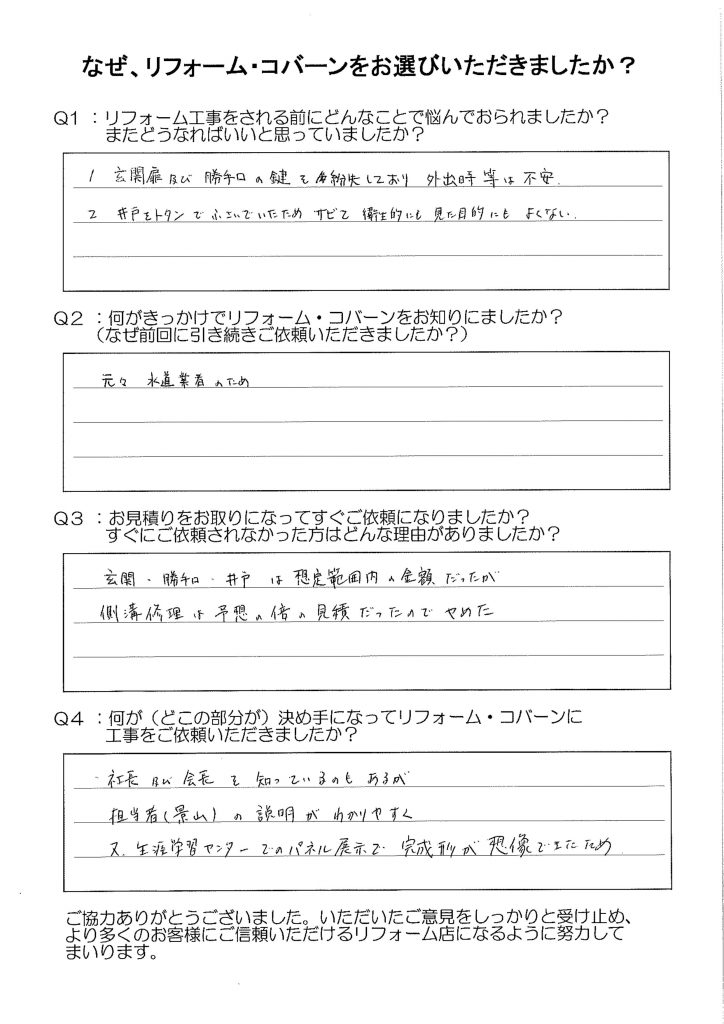 なぜ、リフォーム・コバーンをお選びいただきましたか？
Q1 ：リフォーム工事をされる前にどんなことで悩んでおられましたか？
またどうなればいいと思っていましたか？
1 玄関扉及び 勝手口の鍵を紛失しており 外出時等は不安.
2 井戸をトタンでふさいでいたため サビて 衛生的にも見た目的にも よくない.
Q2 ：何がきっかけでリフォーム・コバーンをお知りにましたか？
（なぜ前回に引き続きご依頼いただきましたか？）
元々 水道業者のため
Q3 ：お見積りをお取りになってすぐご依頼になりましたか？
すぐにご依頼されなかった方はどんな理由がありましたか？
玄関・勝手口・井戸 は想定範囲内の金額だったが
側溝修理は予想の倍の見積だったのでやめた
Q4 ：何が（どこの部分が）決め手になってリフォーム・コバーンに
工事をご依頼いただきましたか？
社長及び会長を知っているのもあるが
担当者(景山)の説明がわかりやすく
又、生涯学習センターでのパネル展示で 完成形が想像できたため
ご協力ありがとうございました。いただいたご意見をしっかりと受け止め、
より多くのお客様にご信頼いただけるリフォーム店になるように努力して
まいります。